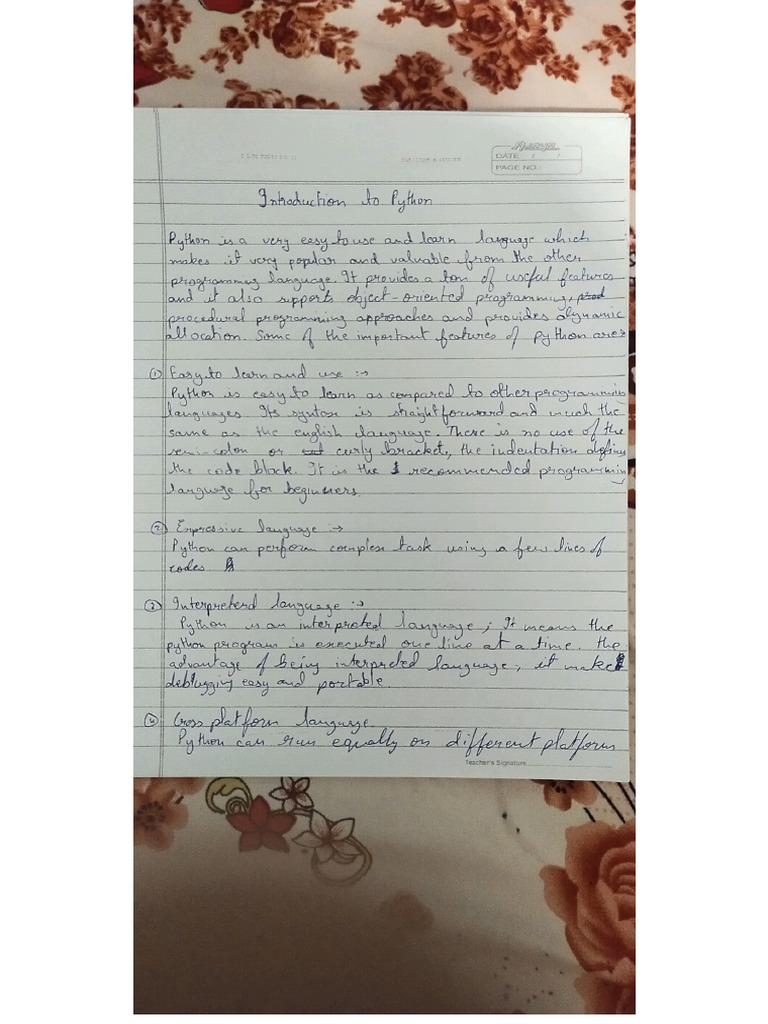 Aarya
DATE / /
PAGE NO.:
Introduction to Python
Python is a very easy to use and learn language which
makes it very popular and valuable from the other
programming language. It provides a ton of useful features
and it also supports object-oriented programming, prod
procedural programming approaches and provides dynamic
allocation. Some of the important features of python are:
① Easy to learn and use :→
Python is easy to learn as compared to other programming
languages. Its syntax is straightforward and much the
same as the english language. There is no use of the
semi-colon or curly bracket, the indentation defines
the code block. It is the recommended programming
language for beginners.
② Expressive language :→
Python can perform complex task using a few lines of
codes
③ Interpreterd language :→
Python is an interpreted language; It means the
python program is executed one line at a time. the
advantage of being interpreted language, it make
debugging easy and portable.
④ Cross platform language.
Python can run equally on different platform
Teacher's Signature